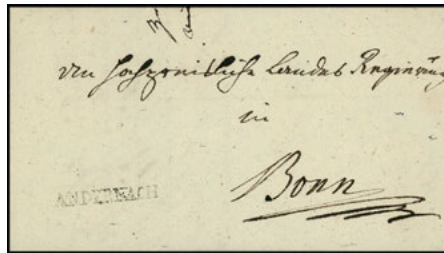 An Hochpreisliche Landes Regierung
in
Bonn
ANDERNACH